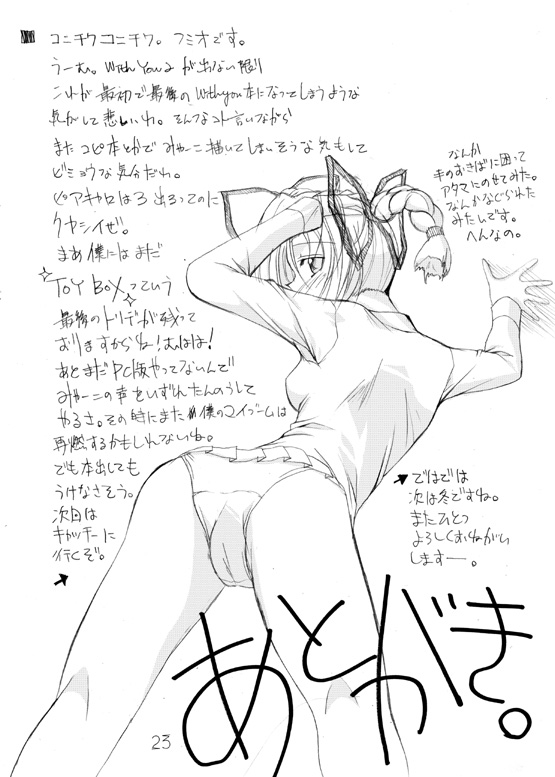 コニチワコニチワ。フミオです。
うーむ。With You2 が出ない限り
コレが最初で最後のWithyou本になってしまうような
気がして悲しいわ。そんなコト言いながら
またコピ本とかでみゃーこ描いてしまいそうな気もして
ビミョウな気分だわ。
ピアキャロは3出るってのに
クヤシイぜ。
まぁ僕にはまだ
TOY BOXっていう
最後のトリデが残って
おりますからね!むはは!
あとまだPC版やってないんで
みゃーこの声をいずれたんのうして
やるさ。その時にまた僕のマイブームは
再燃するかもしれないね。
でも本出しても
うけなさそう。
次回は
キャッチーに
行くぞ。
なんか
手のおきばに困って
アタマにのせてみた。
なんかなぐられた
みたいです。
へんなの。
ではでは
次は冬ですね。
またひとつ
よろしくおねがい
しますー。
あとがき。
23